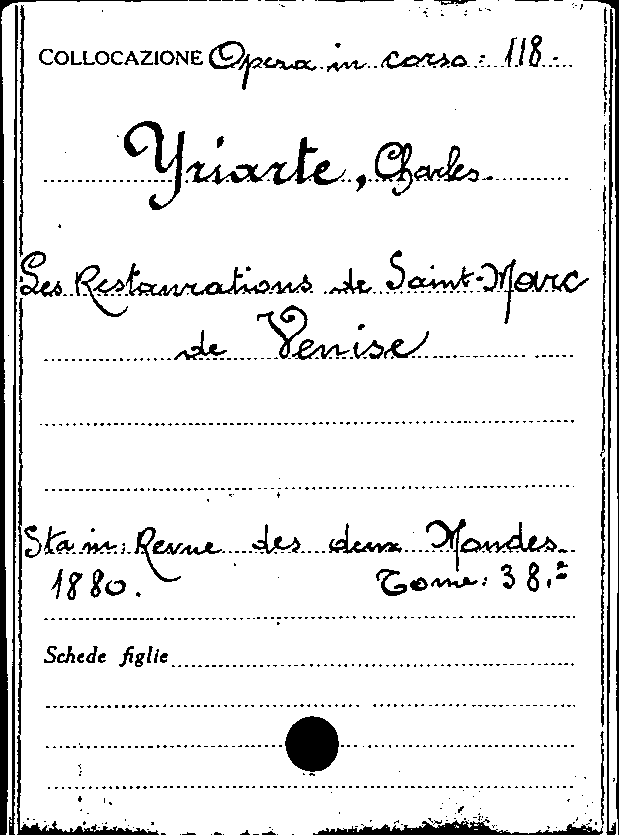 COLLOCAZIONE Opera in corso: 118.
Yriarte, Charles.
Les Restaurations de Saint-Marc
de Venise
Sta in: Revue des deux Mondes.
1880. Tome: 38.º
Schede figlie